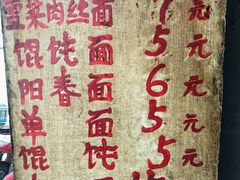 雪菜肉丝面 7元
馄饨面 5元
阳香面 6元
单面 5元
馄饨 5元